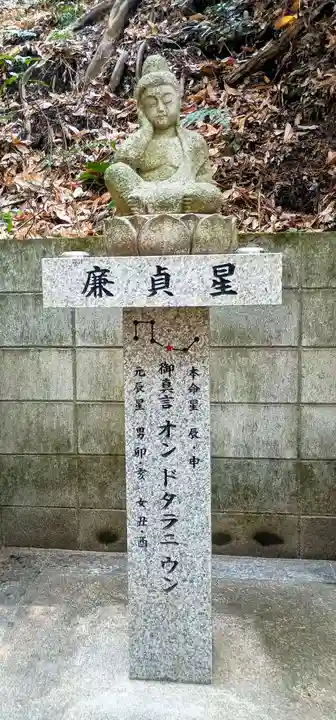 廉貞星
本命星 辰・申
御真言 オンドタラニウン
元辰星 男卯・亥 女丑・酉